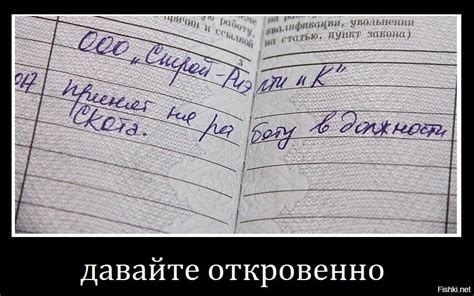 работу,
причин и ссылкой
квалификации, увольнении
на статью, пункт закона)
3
ООО „Строй-Риэлти и К"
017 принят на работу в должности
Скота.
давайте откровенно
Fishki.net